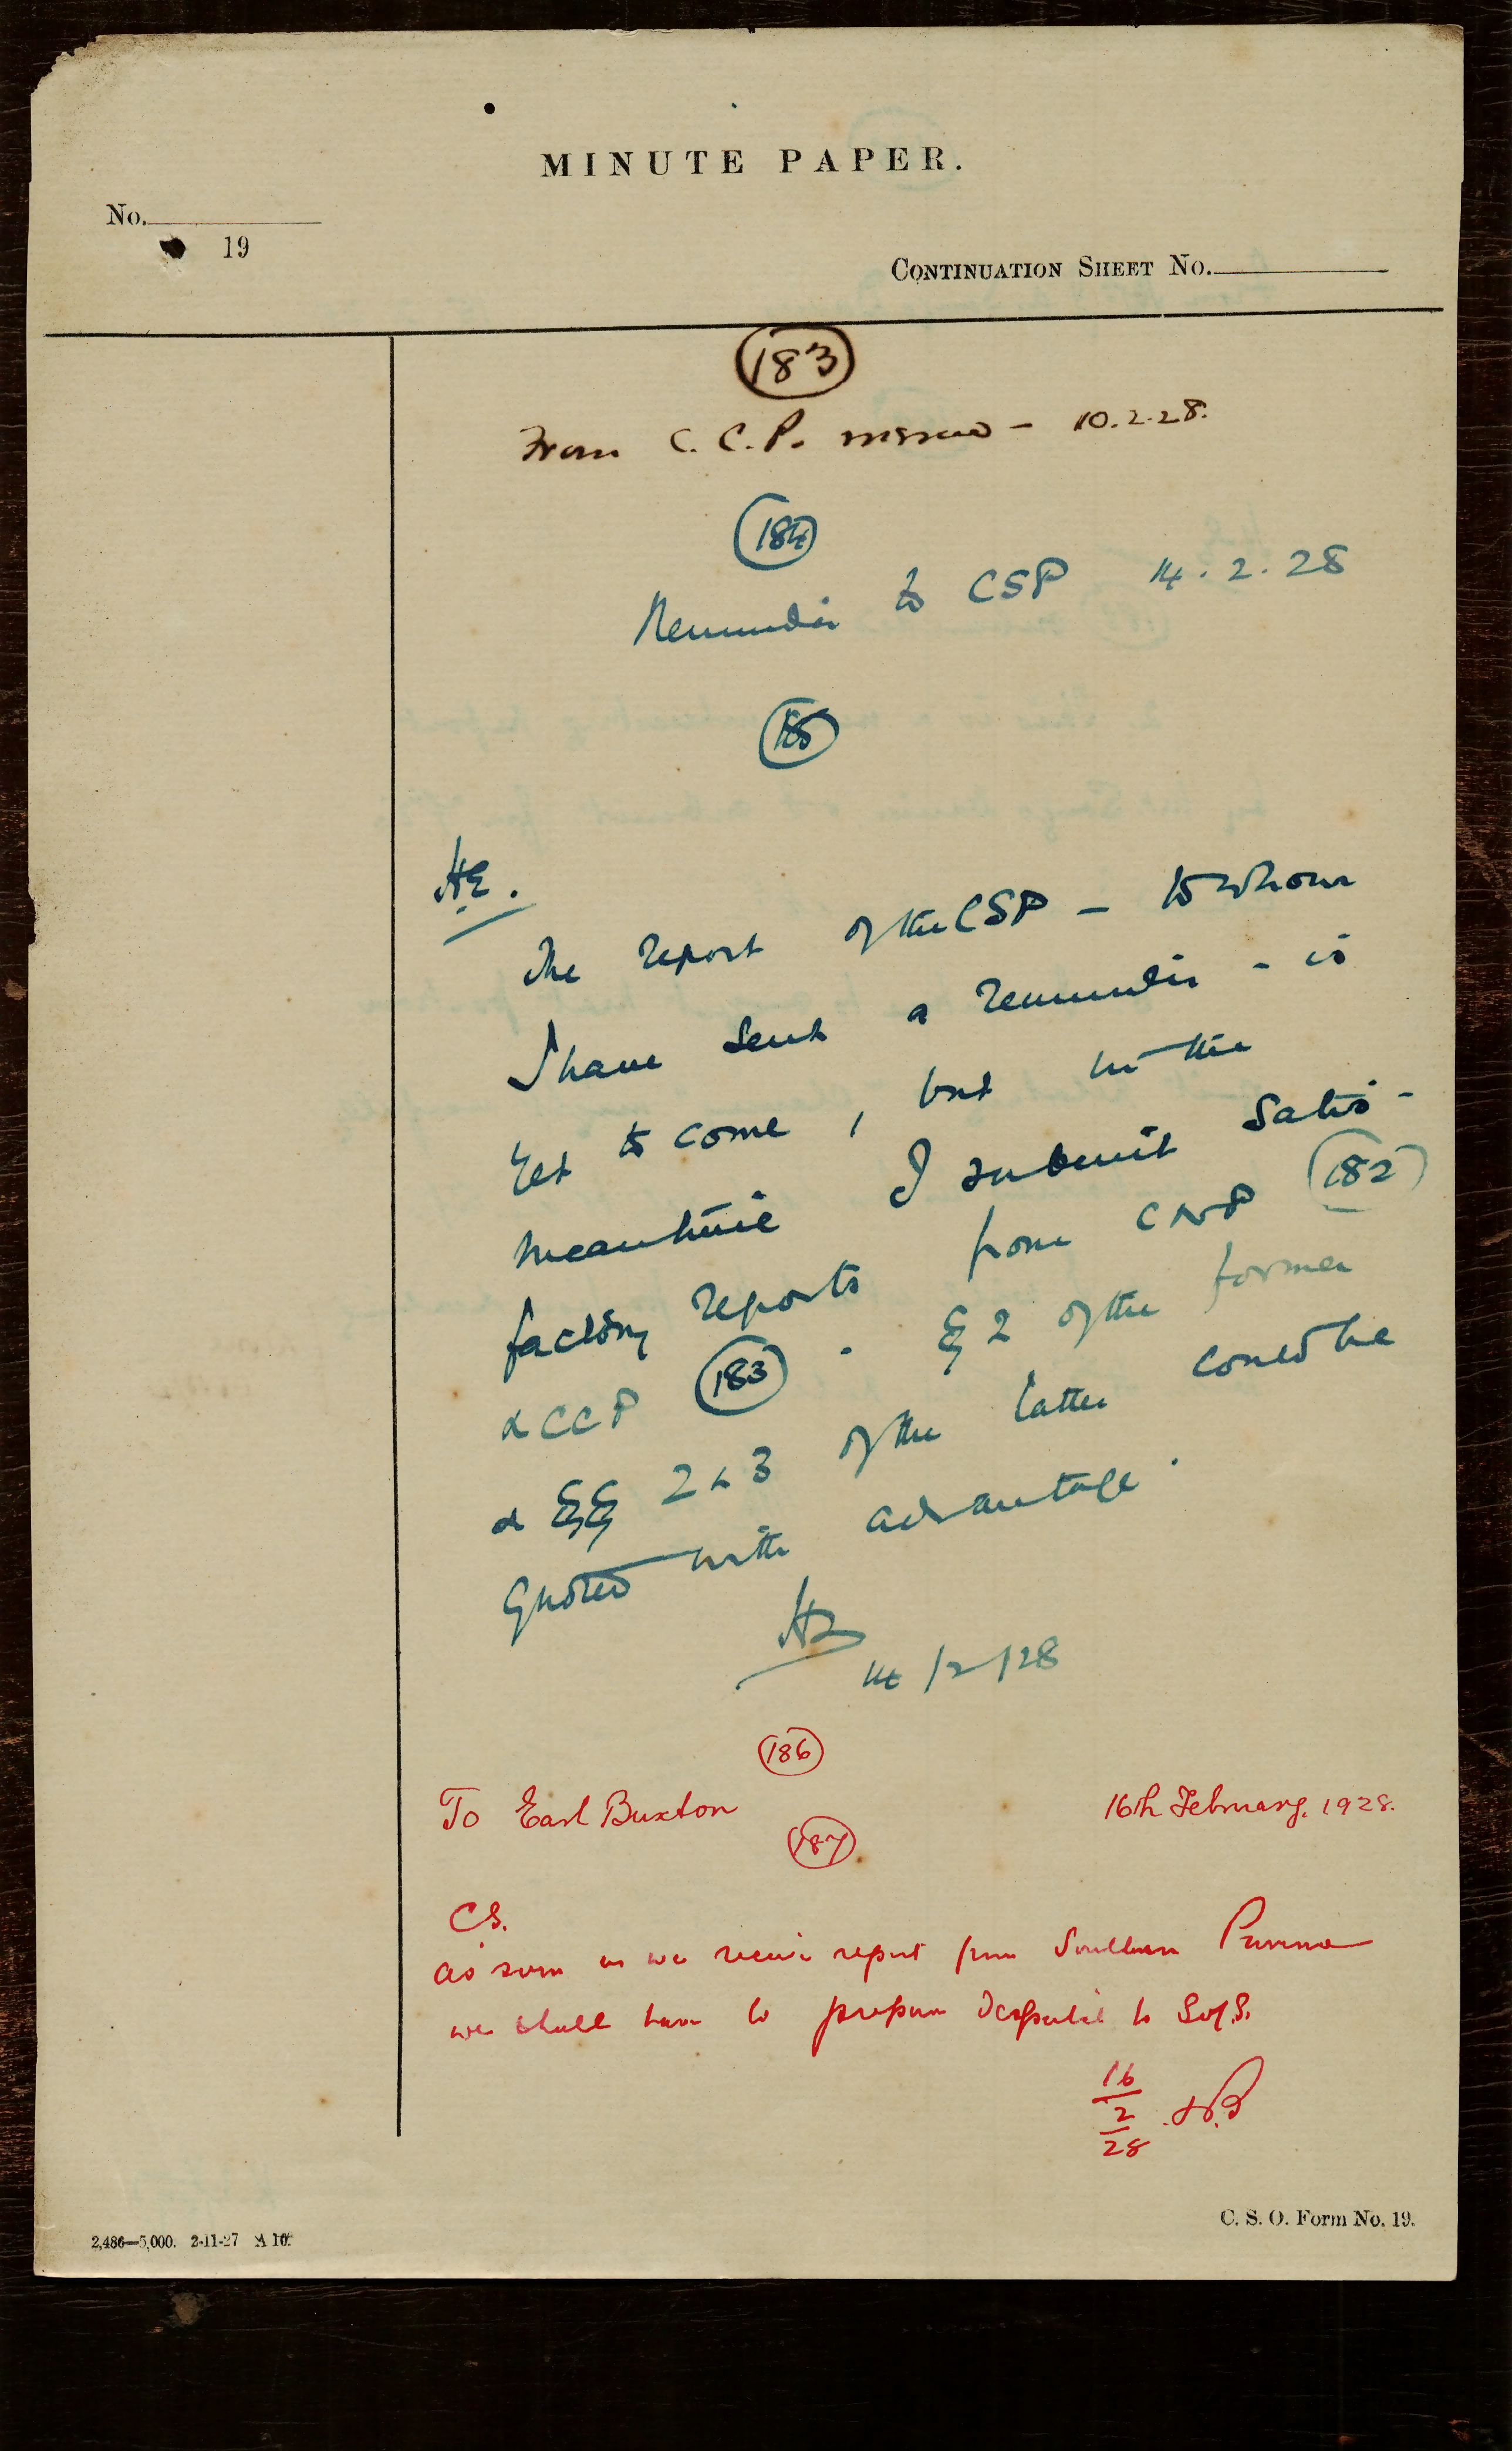 MINUTE PAPER.
No.
19
CONTINUATION SHEET No.
183
From C. C. P. memo — 10.2.28.
184
Reminder to CSP 14.2.28
185
H.E.
The report of the CSP — to whom
I have sent a reminder - is
yet to come, but in the
meantime I submit satis-
factory reports from CNP (182)
& CCP (183). § 2 of the former
& §§ 2 & 3 of the latter could be
quoted with advantage.
14/2/28
186
To Earl Buxton 16th February. 1928.
187
C.S.
As soon as we receive report from Southern Province
we shall have to prepare Despatch to S of S.
16
2
28
2,486—5,000. 2-11-27 A 10.
C. S. O. Form No. 19.